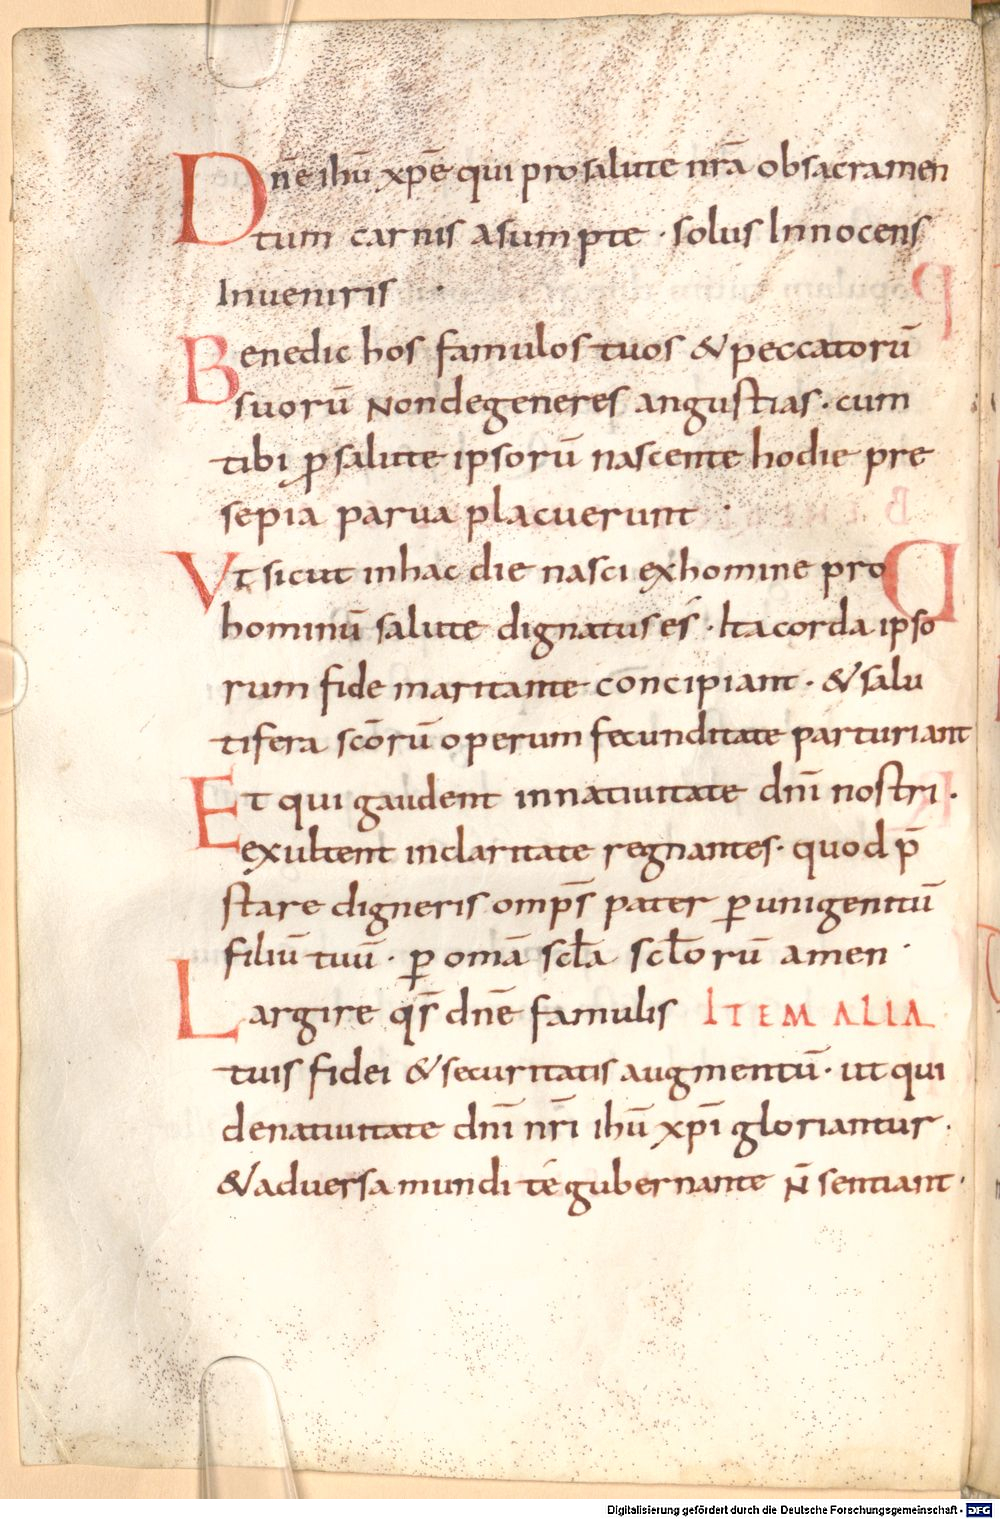 Dn̄e ihū xp̄e qui pro salute nr̄a ob sacramen
tum carnis asumpte · solus Innocens
Inueniris ·
Benedic hos famulos tuos & peccatorū
suorū Non degeneres angustias · cum
tibi ꝓ salute ipsorū nascente hodie pre
sepia parua placuerunt ·
Vt sicut in hac die nasci ex homine pro
hominū salute dignatus es · Ita corda ipso
rum fide maritante concipiant · & salu
tifera sc̄orū operum fecunditate parturiant
Et qui gaudent in natiuitate dn̄i nostri ·
exultent in claritate regnantes · quod p̄
stare digneris omp̄s pater ꝑ unigenitū
filiū tuū · ꝑ om̄a scl̄a scl̄orū amen ·
Largire qs̄ dn̄e famulis ITEM ALIA
tuis fidei & securitatis augmentū · ut qui
de natiuitate dn̄i nr̄i ihū xp̄i gloriantur ·
& aduersa mundi té gubernante n̄ sentiant ·
Digitalisierung gefördert durch die Deutsche Forschungsgemeinschaft - DFG